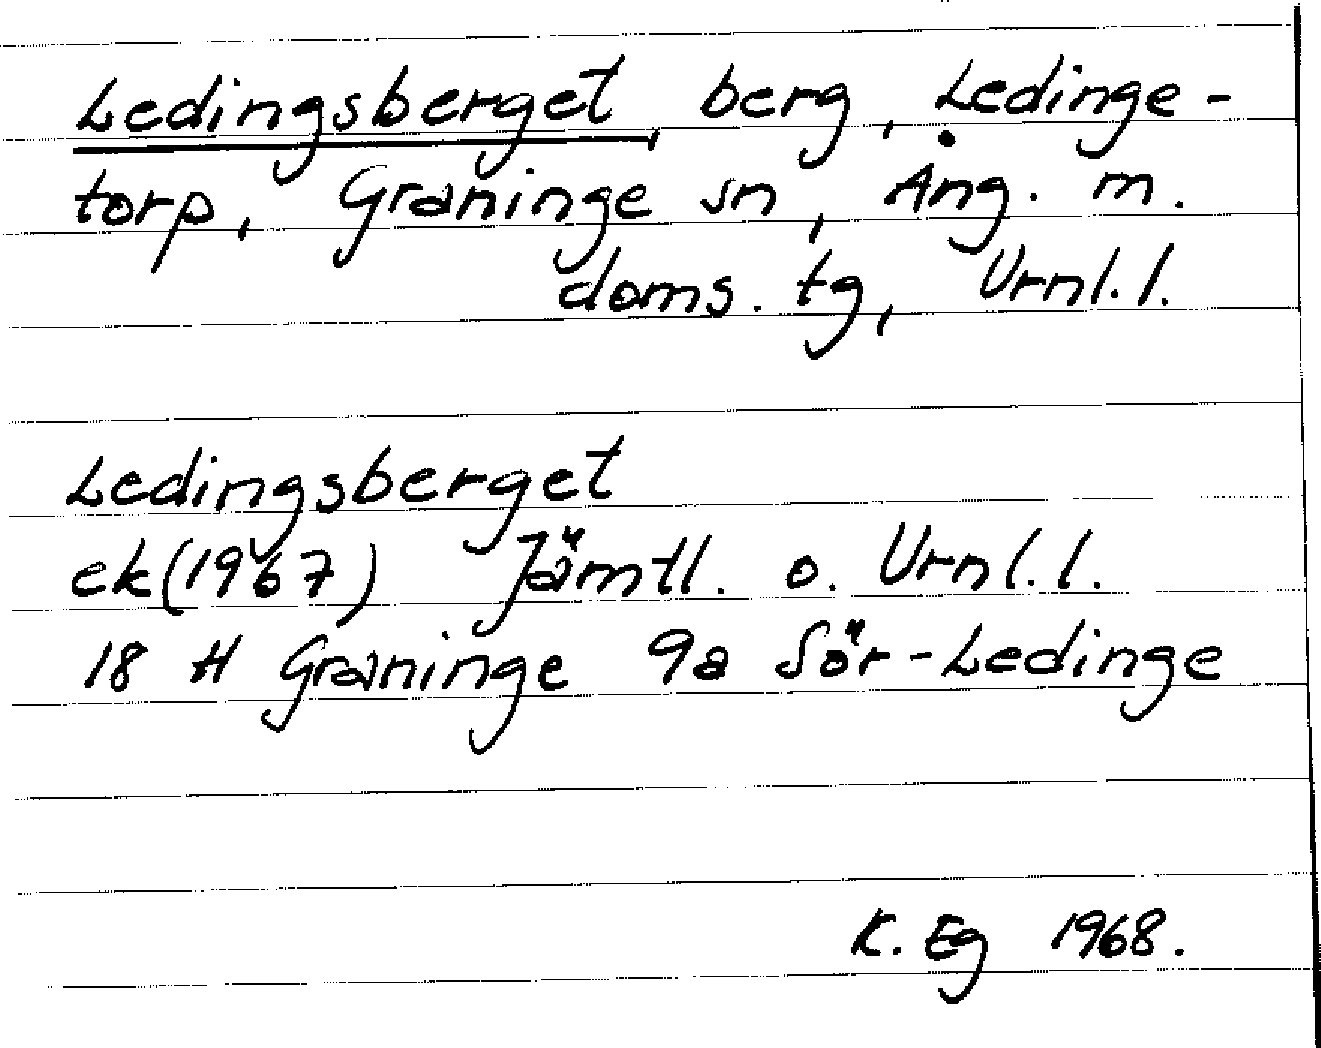 Ledingsberget, berg, Ledinge-
torp, Graninge sn, Ång. m.
doms. tg, Vrnl. l.
Ledingsberget
ek(1967) Jämtl. o. Vrnl. l.
18 H Graninge 9a Sör-Ledinge
K. Eg 1968.